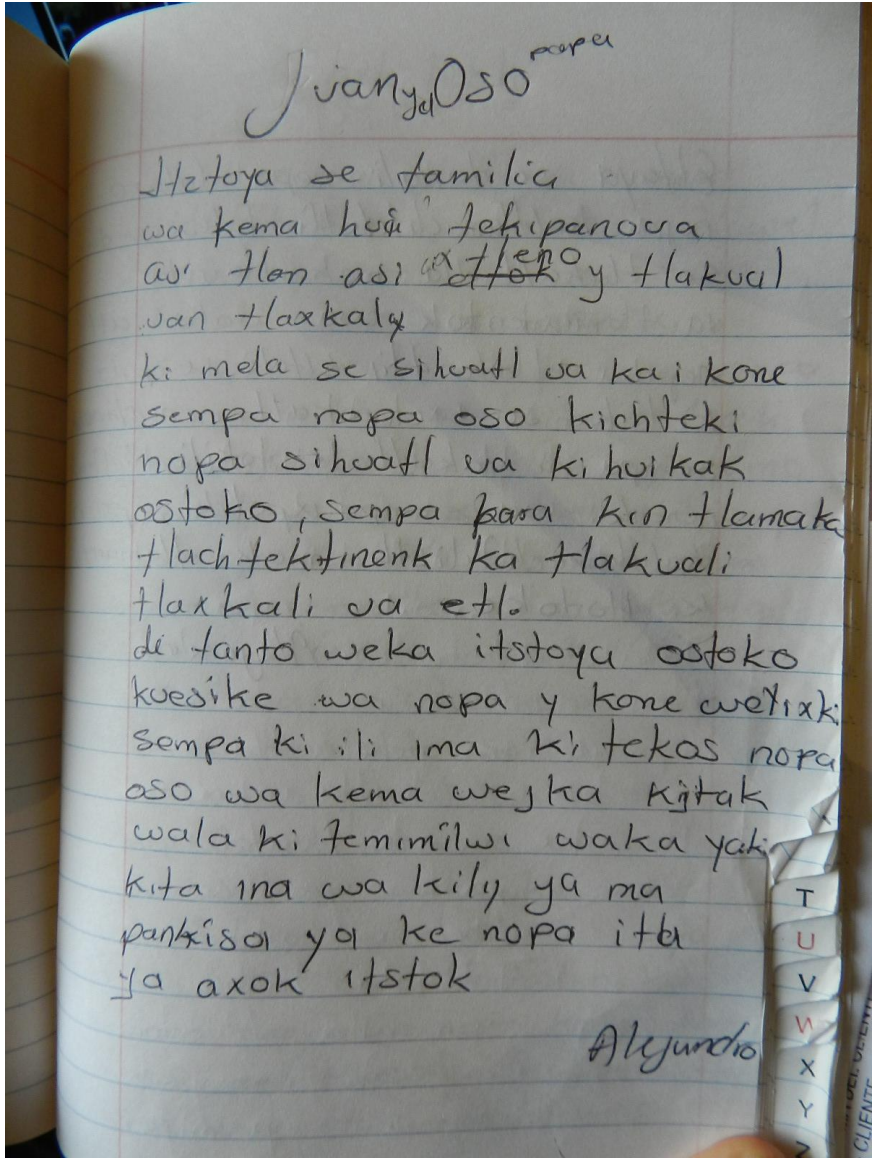 Juan y el Oso papa
Itztoya se familia
wa kema tekipanova
asi tlen asi ax tleno y tlakual
van tlaxkaly
ki mela se sihuatl va ka i kone
sempa nopa oso kichteki
nopa sihuatl va ki huikak
ostoko, sempa para kin tlamaka
tlachtektinenk ka tlakuali
tlaxkali va etl.
di tanto weka itstoya ostoko
kuesike wa nopa y kone wetixki
sempa ki ili ima ki tekos nopa
oso wa kema wejka kitak
wala ki temimilwi waka yaki
kita ina wa kily ya ma
pankisa ya ke nopa ita
ya axok itstok
Alejandro
T
U
V
W
X
Y
Z
CLIENTE